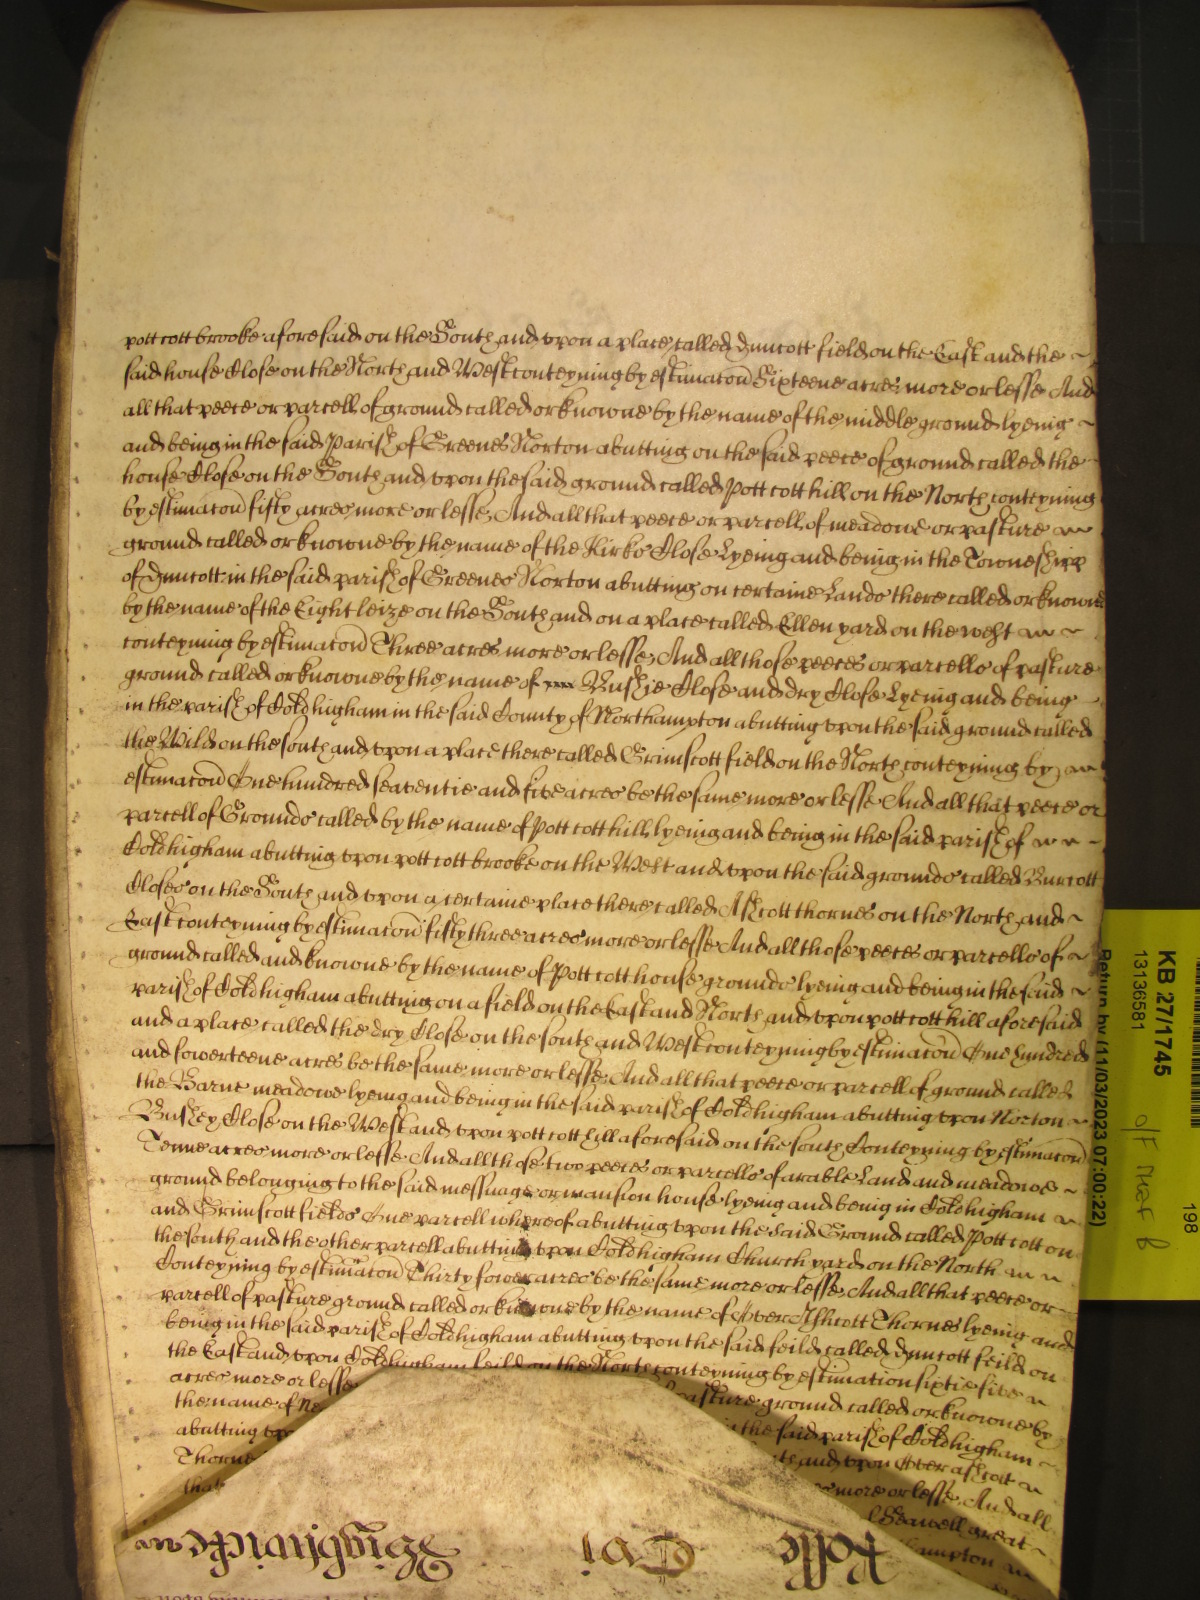 pott cott brooke aforesaid on the South and vpon a place called Duncott field on the East and the
said house Close on the North and West conteyning by estimacon Sixteene acres more or lesse And
all that peece or parcell of ground called or knowne by the name of the middle ground lyeing
and being in the said Parish of Greenes Norton abutting on the said peece of ground called the
house Close on the South and vpon the said ground called Pott cott hill on the North conteyning
by estimacon fifty acres more or lesse And all that peece or parcell of meadowe or pasture
ground called or knowne by the name of the Kirks Close Lyeing and being in the Towneshipp
of Duncott in the said parish of Greenes Norton abutting on certaine Lands there called or knowne
by the name of the Eight leize on the South and on a place called Ellen yard on the west
conteyning by estimacon Three acres more or lesse And all those peeces or parcells of pasture
ground called or knowne by the name of Bushie Close and dry Close Lyeing and being
in the parish of Coldhigham in the said County of Northampton abutting vpon the said ground called
the Wild on the south and vpon a place there called Grimscott field on the North conteyning by
estimacon One hundred seaventie and five acres be the same more or lesse And all that peece or
parcell of Grounds called by the name of Pott cott hill lyeing and being in the said parish of
Coldhigham abutting vpon pott cott brooke on the West and vpon the said grounds called Burcott
Closes on the South and vpon a certaine place there called Ashcott thornes on the North and
East conteyning by estimacon fifty three acres more or lesse And all those peeces or parcells of
ground called and knowne by the name of Pott cott house grounds lyeing and being in the said
parish of Coldhigham abutting on a field on the East and North and vpon pott cott hill aforesaid
and a place called the dry Close on the south and West conteyning by estimacon One hundred
and fowerteene acres be the same more or lesse And all that peece or parcell of ground called
the Barne meadowe lyeing and being in the said parish of Coldhigham abutting vpon Norton
Bushey Close on the West and vpon pott cott hill aforesaid on the south Conteyning by estimacon
Tenne acres more or lesse And all those two peeces or parcells of arable Land and meadowe
ground belonging to the said messuage or mansion house lyeing and being in Coldhigham
and Grimscott fields One parcell whereof abutting vpon the said Ground called Pott cott on
the south and the other parcell abutting vpon Coldhigham Church yard on the North
Conteyning by estimacon Thirty fower acres be the same more or lesse And all that peece or
parcell of pasture ground called or knowne by the name of Over Ashcott Thornes lyeing and
being in the said parish of Coldhigham abutting vpon the said feild called Duncott feild on
the East and vpon Coldhigham feild on the North conteyning by estimation sixtie five
acres more or lesse pasture ground called or knowne by
the name of Ne the said parish of Coldhigham
abutting vpo and vpon Over ashcott
Thorne more or lesse And all
that Seawell great
ampton
Rolle Cxvi Hivgstwicke
KB 27/1745
13136581
Return by (11/03/2023 07:00:22)
198